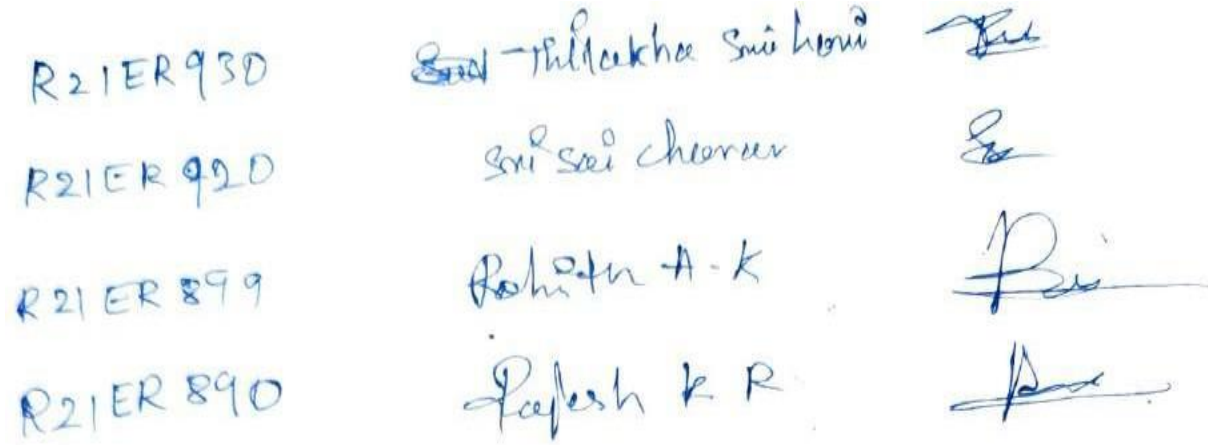 R21ER930 Thilakha Sri hari
R21ER920 Sri Sai charan
R21ER899 Rohith A-K
R21ER890 Rajesh K R